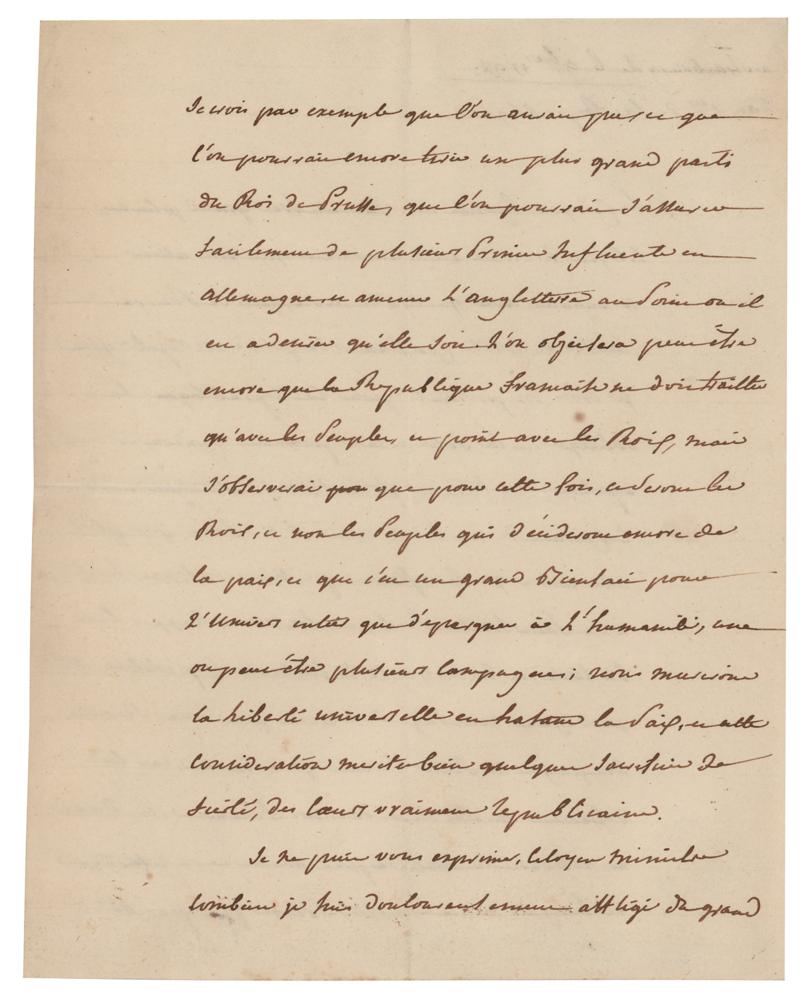 Je crois par exemple que l'on aurait pu, et que
l'on pourrait encore tirer un plus grand parti
du Roi de Prusse, que l'on pourrait s'assurer
facilement de plusieurs Princes Influents en
allemagne, et amener L'angleterre au point ou il
en a desirer qu'elle soit. L'on objectera peut être
encore que la Republique francaise ne doit traitter
qu'avec les Peuples, et point avec les Rois, mais
j'observerai que pour cette fois, ce seront les
Rois, et non les Peuples qui décideront encore de
la paix, et que c'est un grand Bienfait pour
L'Univers entier que d'epargner à L'humanité, une
ou peut être plusieurs Campagnes; nous murirons
la Liberté universelle en hatant la Paix, et cette
consideration merite bien quelques sacrifices de
fierté, des Cœurs vraiment republicains.
Je ne puis vous exprimer, Citoyen ministre
combien je suis douloureusement affligé du grand